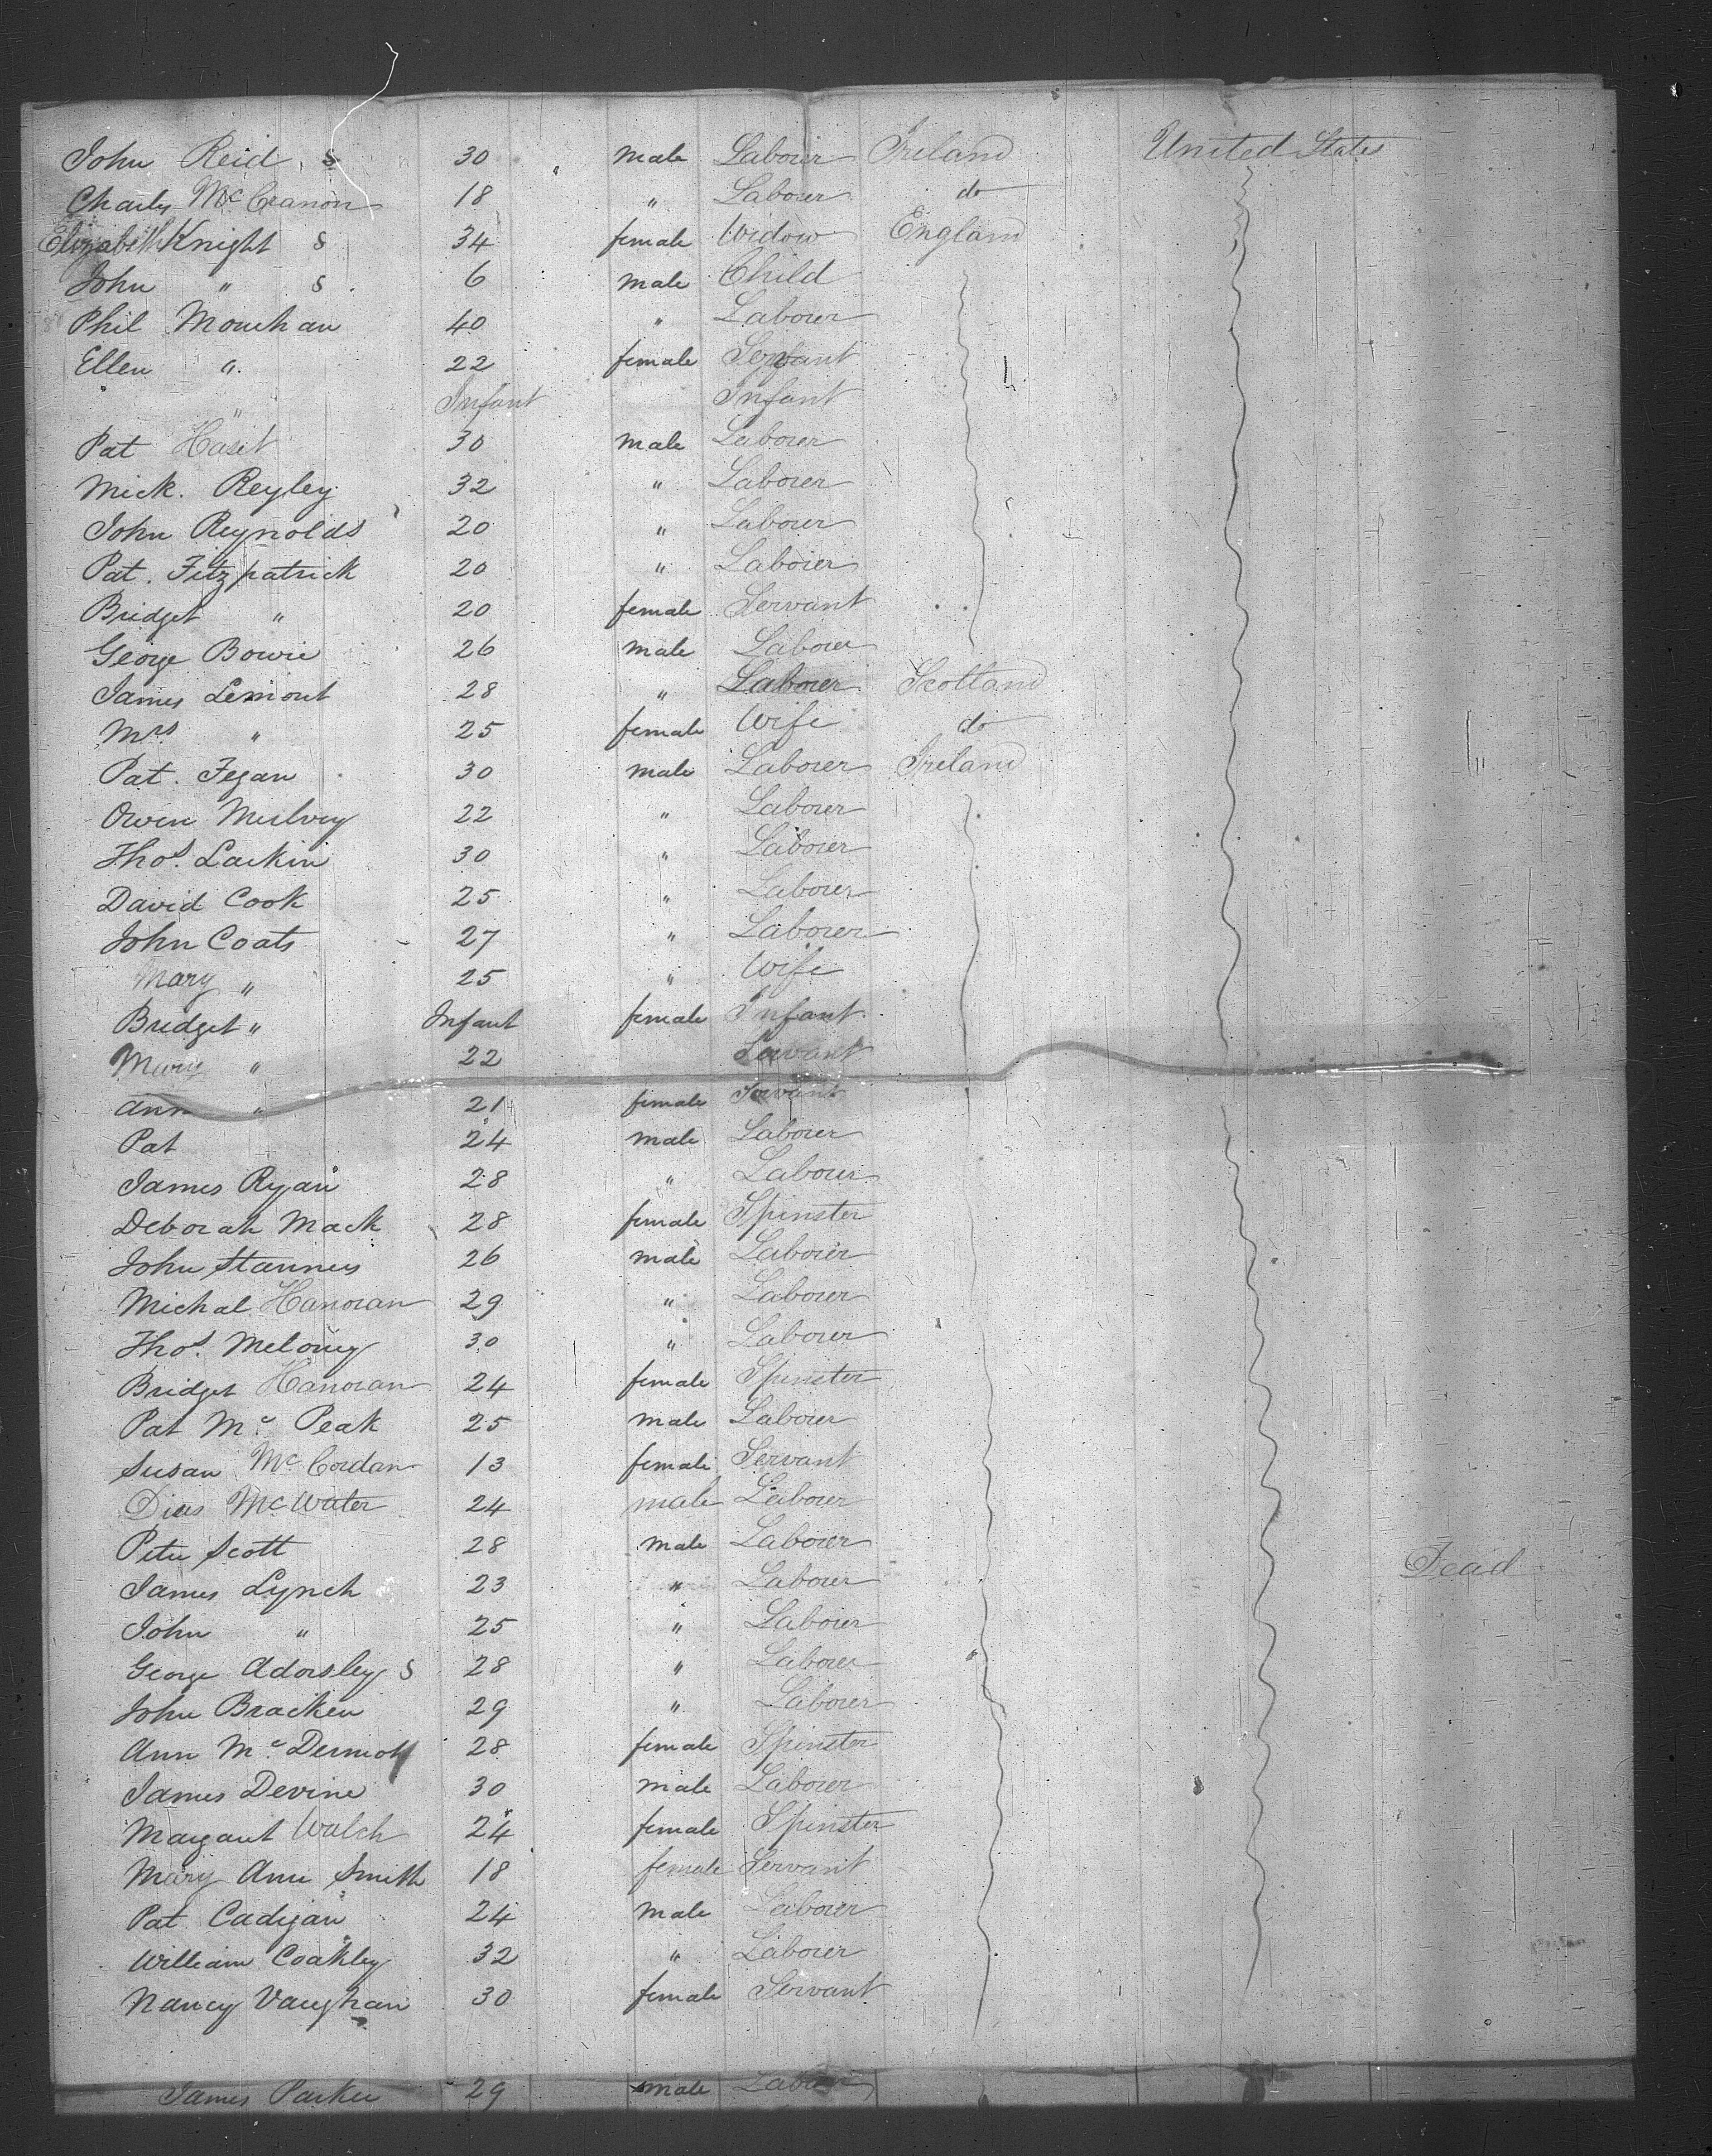 John Reid s 30 male Labourer Ireland United States
Charles McCranon 18 " Labourer do
Elizabeth Knight s 34 female Widow England
John " s 6 male Child
Phil Monehan 40 " Labourer
Ellen " 22 female Servant
" Infant Infant
Pat Haset 30 male Labourer
Mick. Reyley 32 " Labourer
John Reynolds 20 " Labourer
Pat. Fitzpatrick 20 " Labourer
Bridget " 20 female Servant
George Bowie 26 male Labourer
James Lemont 28 " Labourer Scotland
Mrs " 25 female Wife do
Pat. Fegan 30 male Labourer Ireland
Owen Mulvey 22 " Labourer
Thos. Larkin 30 " Labourer
David Cook 25 " Labourer
John Coats 27 " Labourer
Mary " 25 " Wife
Bridget " Infant female Infant
Mary " 22 Servant
Ann " 21 female Servant
Pat 24 male Labourer
James Ryan 28 " Labourer
Deborah Mack 28 female Spinster
John Stannes 26 male Labourer
Michal Hanoran 29 " Labourer
Thos. Meloney 30 " Labourer
Bridget Hanoran 24 female Spinster
Pat Mc Peak 25 male Labourer
Susan McCordan 13 female Servant
McWater 24 male Labourer
Peter Scott 28 male Labourer
James Lynch 23 " Labourer
John " 25 " Labourer
George Adorsley s 28 " Labourer
John Bracken 29 " Labourer
Ann Mc Dermot 28 female Spinster
James Devine 30 male Labourer
Margaret Walch 24 female Spinster
Mary Ann Smith 18 female Servant
Pat Cadigan 24 male Labourer
William Coakley 32 " Labourer
Nancy Vaughan 30 female Servant
James Parker 29 male Labourer